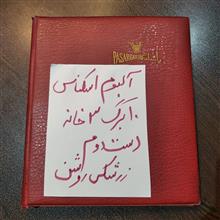 PASARGAD
آلبوم اسکناس
۱۰ برگ ۳ خانه
استاندارد
زرشکی روشن